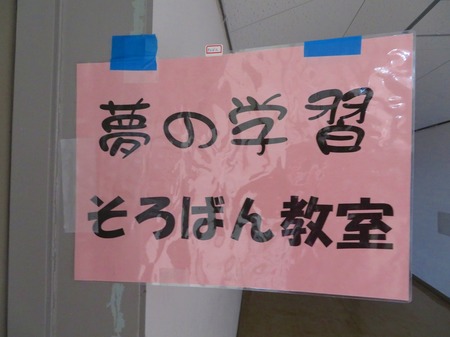 夢の学習
そろばん教室